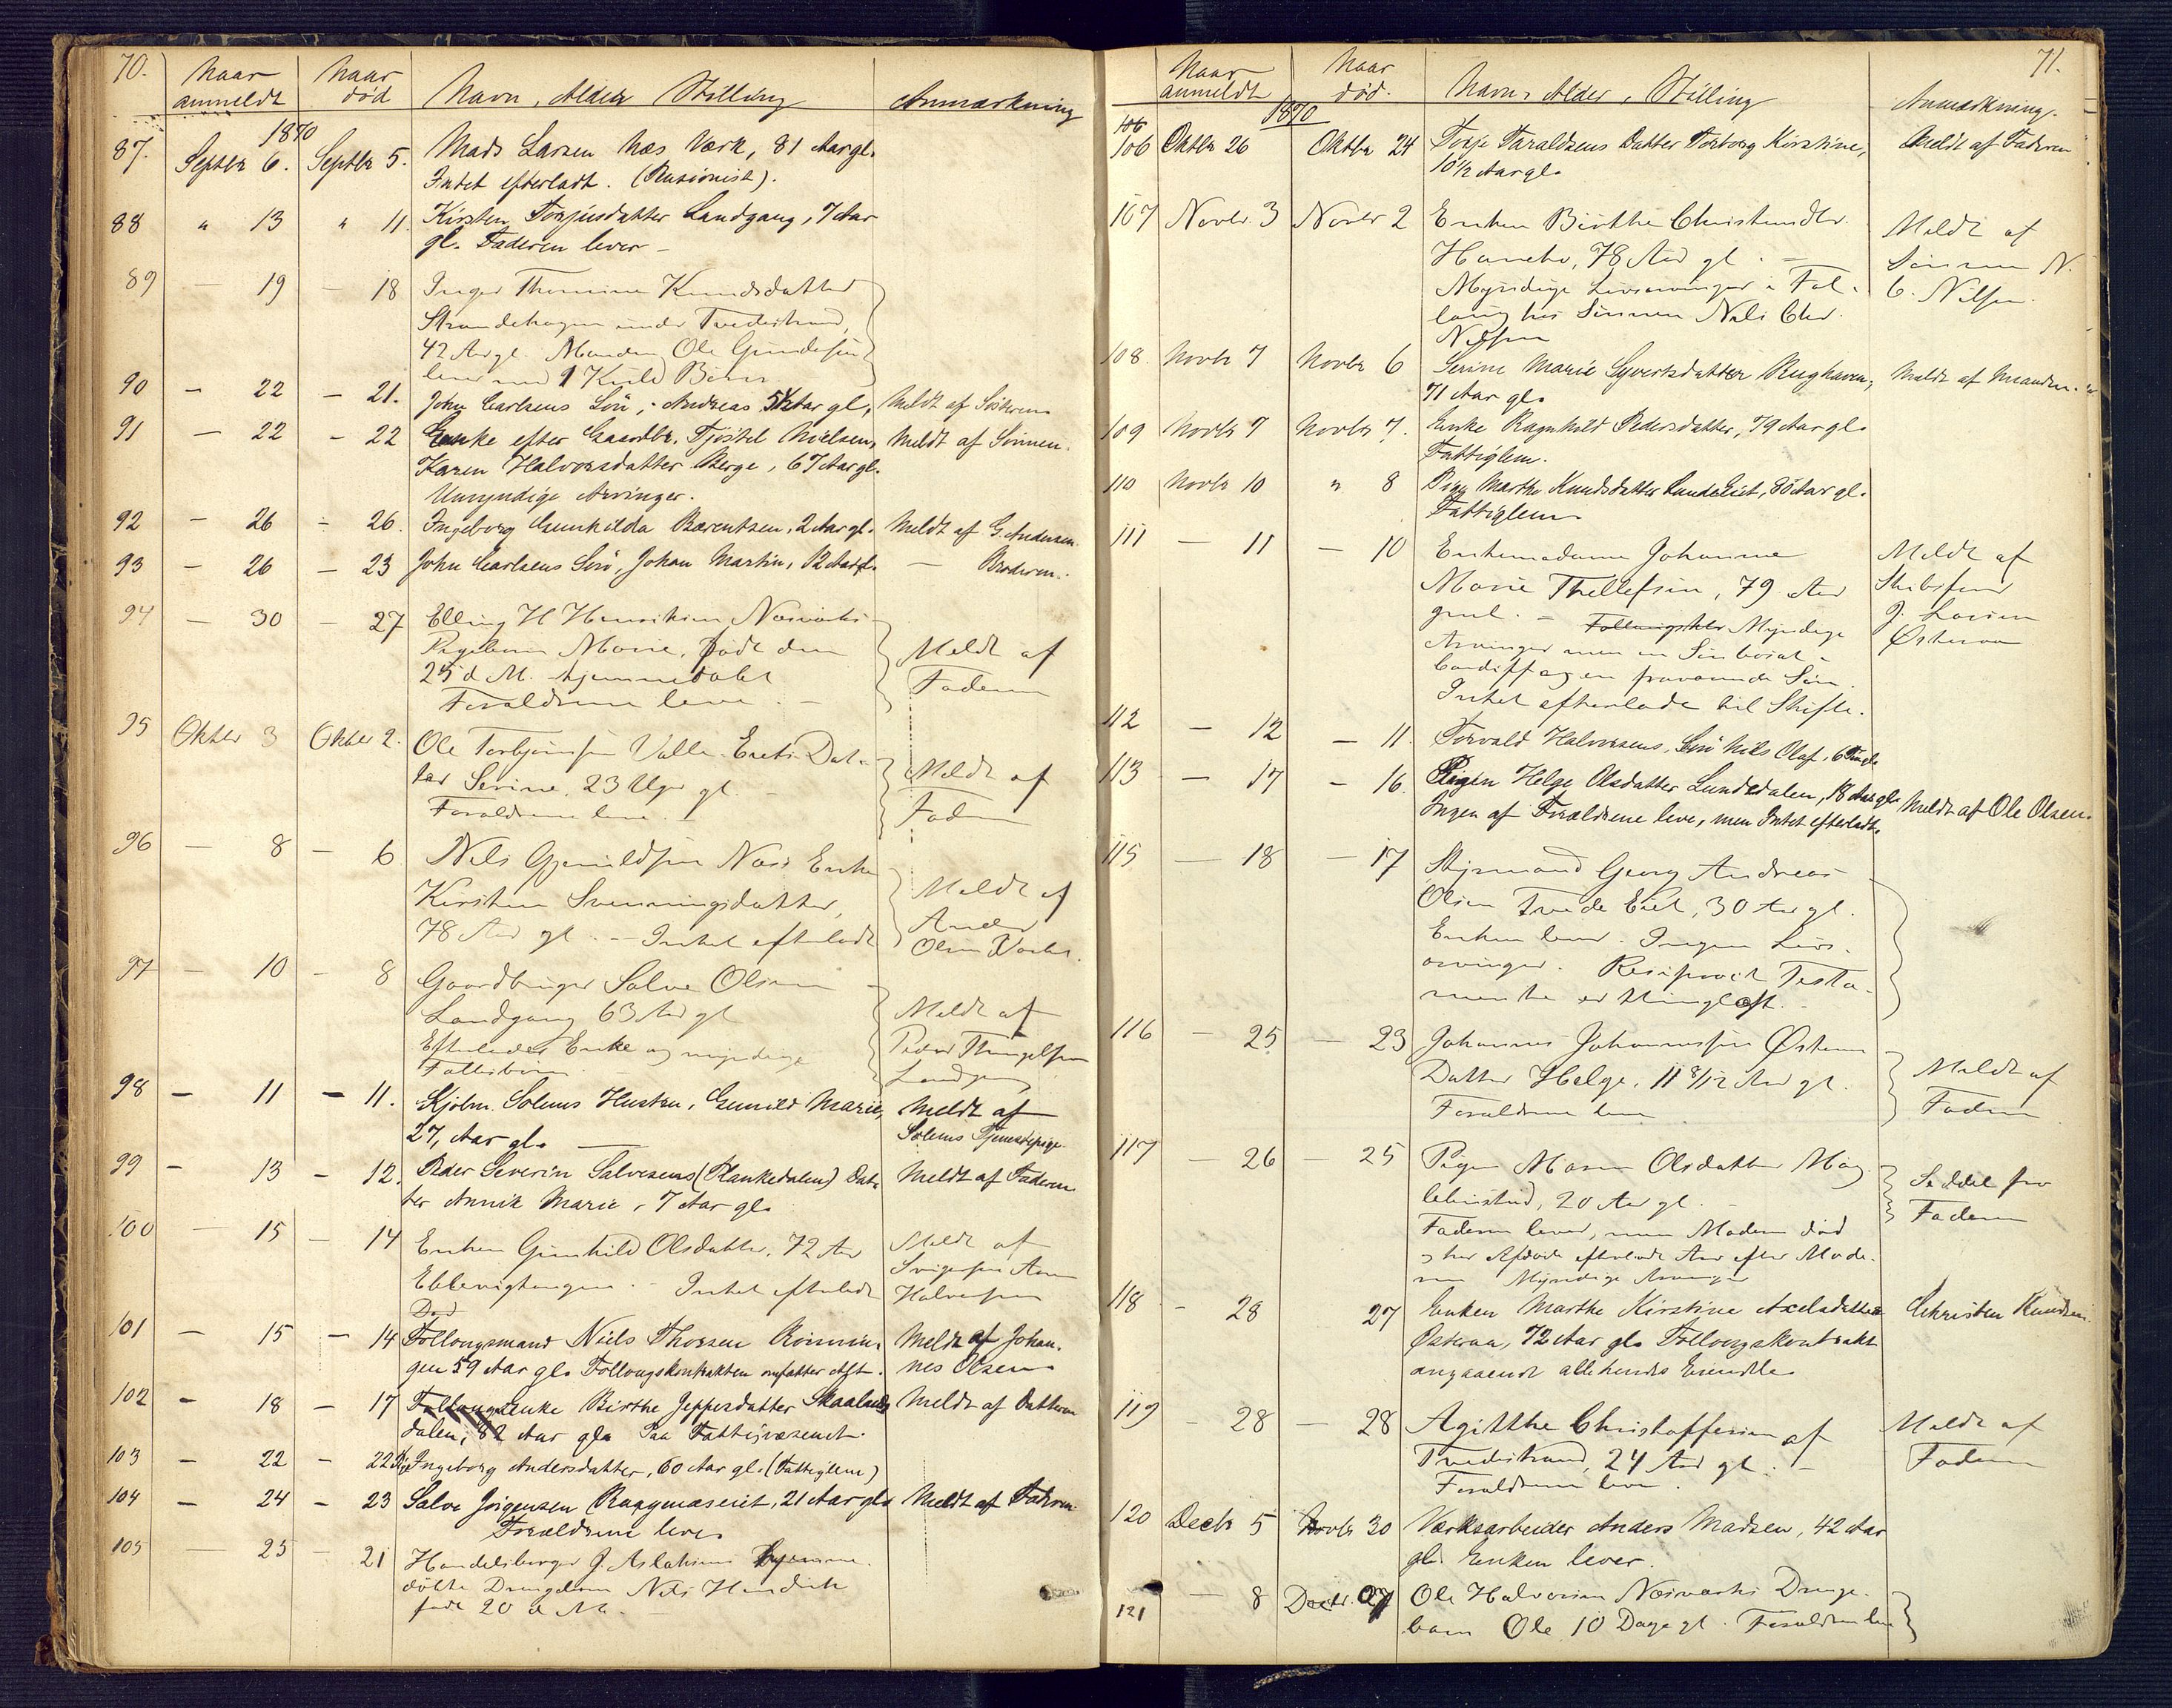 70.
Naar anmeldt | Naar død | Navn, Alder Stilling | Anmærkning
1870
87. Septbr 6. Septbr 5. Mads Larsen Næs Værk, 81 Aar gl.
Intet efterladt. (Pensionist).
88 " 13 " 11. Kirsten Torjusdatter Landgang, 7 Aar
gl. Faderen lever —
89 — 19 — 18 Inger Thomine Knudsdatter
Strandehagen under Tvedestrand,
42 Aar gl. Manden Ole Gundersen
lever med 1 Kuld Børn
90 — 22 — 21. John Carlsens Søn, Andreas 5½ Aar gl, Meldt af Søsteren
91 — 22 — 22 Enke efter Gaardbr. Tjøstel Nielsen, Meldt af Sønnen.
Karen Halvorsdatter Berge, 67 Aar gl.
Umyndige Arvinger.
92 — 26 — 26. Ingeborg Gunhilda Berentsen, 2 Aar gl. Meldt af G. Andersen
93 — 26 — 23 John Carlsens Søn, Johan Martin, 12 Aar gl. — Broderen.
94 — 30 — 27 Elling H Henriksen Næsværks
Pigebarn Marie, født den
25 d. M. hjemmedøbt
Forældrene leve. —
Meldt af
Faderen
95 Oktbr 3 Oktbr 2. Ole Torbjørnsen Valle Eiets Dat-
ter Serine, 23 Uger gl. —
Forældrene leve.
Meldt af
Fader
96 — 8 — 6 Nils Gjeruldsen Næs Enke
Kirsten Svenningsdatter,
78 Aar gl. — Intet efterladt
Meldt af
Anders
Olsen
97 — 10 — 8 Gaardbruger Salve Olsen
Landgang 63 Aar gl
Efterlader Enke og myndige
Fællesbørn
Meldt af
Peder
Landgang
98 — 11 — 11. Kjøbm. Solems Hustru, Gunild Marie, Meldt af
27, Aar gl. — Solems Tjenestepige
99 — 13 — 12. Peder Severin Salvesens (Plankedalen) Dat- Meldt af Faderen
ter Annik Marie, 7 Aar gl.
100 — 15 — 14 Enken Gunhild Olsdatter, 72 Aar
Ebbevigtangen. — Intet efterladt
Meldt af
Svigersøn
Halvorsen
Død
101 — 15 — 14 Follougsmand Niels Thorsen Rømmin- Meldt af Johan-
gen 59 Aar gl. Follougskontrakten omfatter Aft. nes Olsen
102 — 18 — 17 Follougsenke Birthe Jeppesdatter Skaalands Meldt af Datteren
dalen, 82 Aar gl. Paa Fattigvæsenet.
103 — 22 — 22 Ingeborg Andersdatter, 60 Aar gl. (Fattiglem)
104 — 24 — 23 Salve Jørgensen Ruggmaseiet, 21 Aar gl. Meldt af Faderen
Forældrene leve.
105 — 25 — 21 Handelsborger J. Aslaksens hjemme-
døbte Drengebarn Nils Hendrik
født 20 d. M. —
71.
Naar anmeldt | Naar død. | Navn, Alder, Stilling | Anmærkning.
1870
106
106 Oktbr 26 Oktbr 24 Torje Taraldsens Datter Torborg Kirstine, Meldt af Faderen
10½ Aar gl.
107 Novbr. 3 Novbr 2 Enken Birthe Christensdtr.
Hanebo, 78 Aar gl. —
Myndige Livsarvinger i Fol-
loug hos Sønnen Nils Chr.
Nilsen
Meldt af
Sønnen N.
C. Nilsen.
108. Novbr 7 Novbr 6 Serine Marie Syvertsdatter Rughaven, Meldt af Manden.
71 Aar gl.
109 Novbr 7 Novbr 7. Enke Ragnhild Pedersdatter, 79 Aar gl.
Fattiglem.
110 Novbr 10 " 8 Pige Marthe Knudsdatter LundeEiet, 80 Aar gl.
Fattiglem
111 — 11 — 10 Enkemadame Johanne
Marie Thellefsen, 79 Aar
gml. — Myndige
Arvinger men en Søn bosat i
Cardiff og en fraværende Søn.
Intet efterladt til Skifte.
Meldt af
Skibsfører
J. Larsen
Østeraa
112 — 12 — 11. Torvald Halvorsens, Søn Nils Olaf, 6
113 — 17 — 16. Pigen Helge Olsdatter Lundedalen, 18 Aar gl. Meldt af Ole Olsen.
Ingen af Forældrene leve, men Intet efterladt.
115 — 18 — 17 Styrmand Georg Andreas
Olsen Tvede Eiet, 30 Aar gl.
Enken lever. Ingen Livs-
arvinger. Reciprocit Testa-
mente er thinglæst. —
116 — 25 — 23 Johannes Johannessen Østeraa
Datter Helge, 11 8/12 Aar gl.
Forældrene leve
Meldt af
Faderen
117 — 26 — 25 Pigen Maren Olsdatter
20 Aar gl. —
Faderen lever, men Moderen død
og har Afdøde efterladt Arv efter Mode-
ren Myndige Arvinger
Seddel fra
Faderen
118 — 28 27 Enken Marthe Kirstine Axelsdatter Christen Knudsen
Østeraa, 72 Aar gl. Follougskontrakt
angaaende allehaande Eiendele
119 — 28 — 28 Agitthe Christoffersen af
Tvedestrand, 24 Aar gl. —
Forældrene leve.
Meldt af
Faderen
120 Decbr 5 Novbr 30 Værksarbeider Anders Madsen, 42 Aar
gl. Enken lever.
121 — 8 Decbr. 07 Ole Halvorsen Næsværks Drenge-
barn Ole 10 Dage gl. Forældrene leve